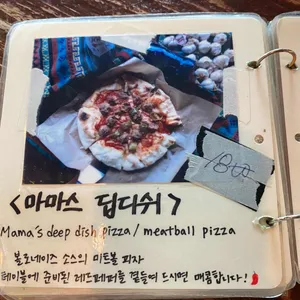 <마마스 딥디쉬>
Mama's deep dish pizza / meatball pizza
볼로네이즈 소스의 미트볼 피자
테이블에 준비된 레드페퍼를 곁들여 드시면 매콤합니다!